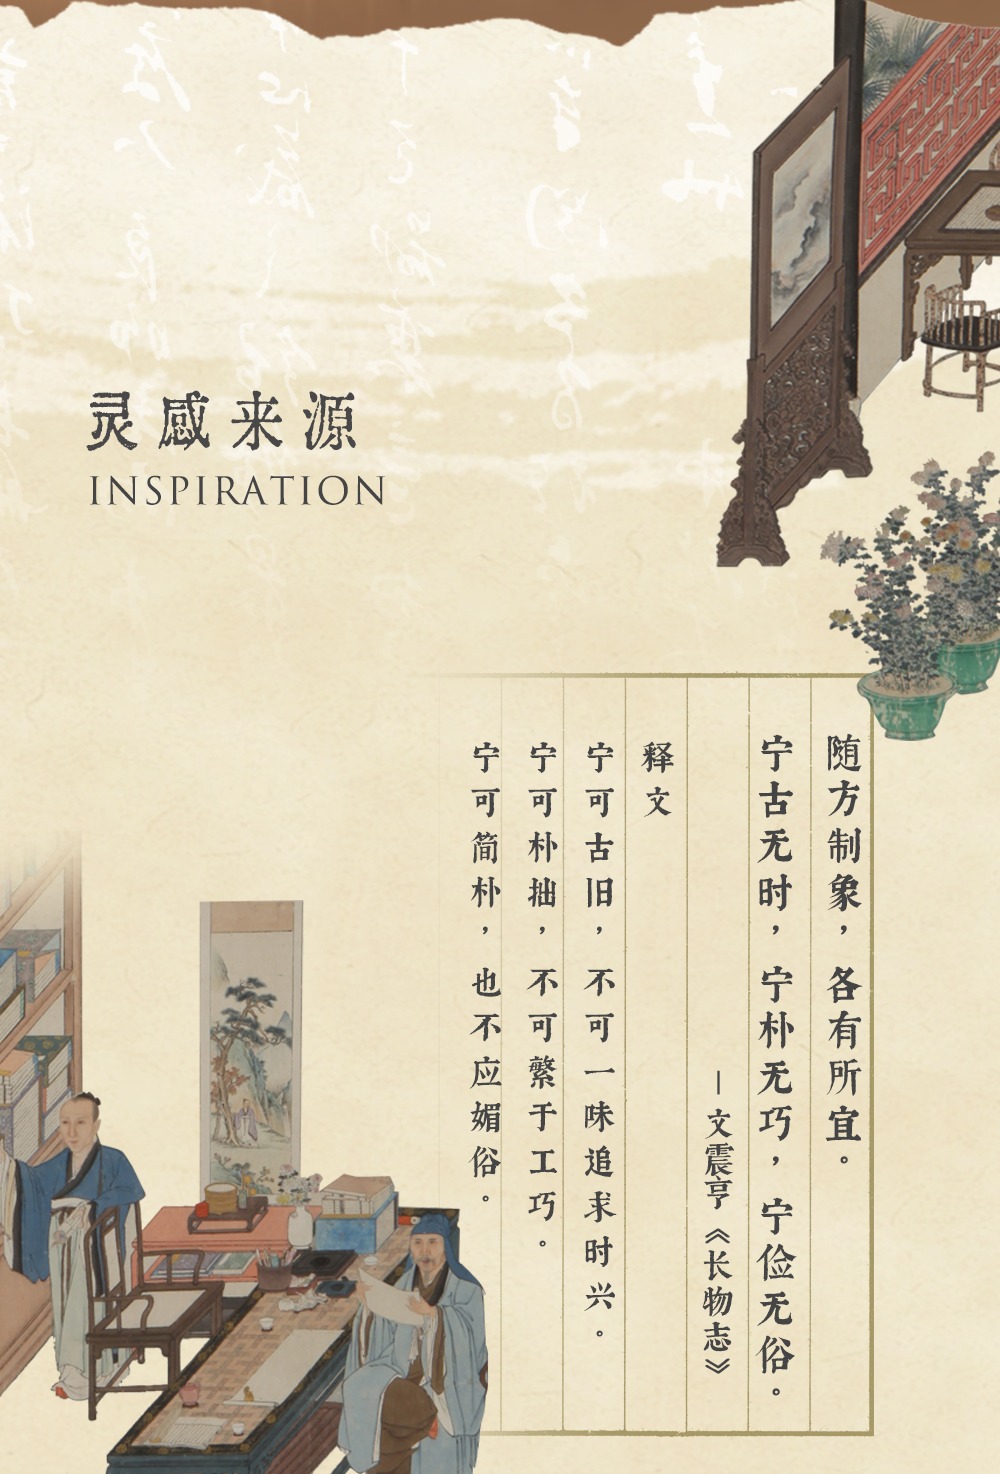 灵感来源
INSPIRATION
随方制象，各有所宜。
宁古无时，宁朴无巧，宁俭无俗。
—文震亨《长物志》
释文
宁可古旧，不可一味追求时兴。
宁可朴拙，不可繁于工巧。
宁可简朴，也不应媚俗。